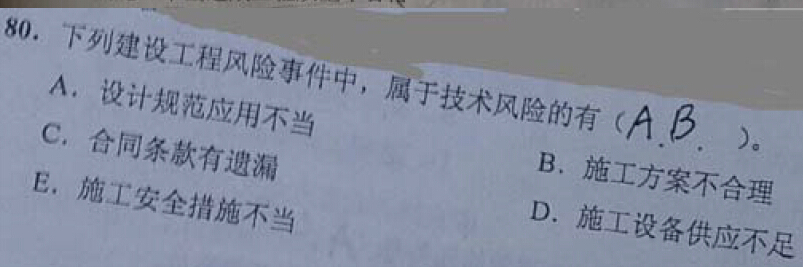 80. 下列建设工程风险事件中，属于技术风险的有（A.B.）。
A. 设计规范应用不当
B. 施工方案不合理
C. 合同条款有遗漏
D. 施工设备供应不足
E. 施工安全措施不当